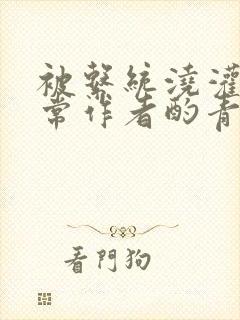 被繫統澆灌
常作者酌青
看門狗